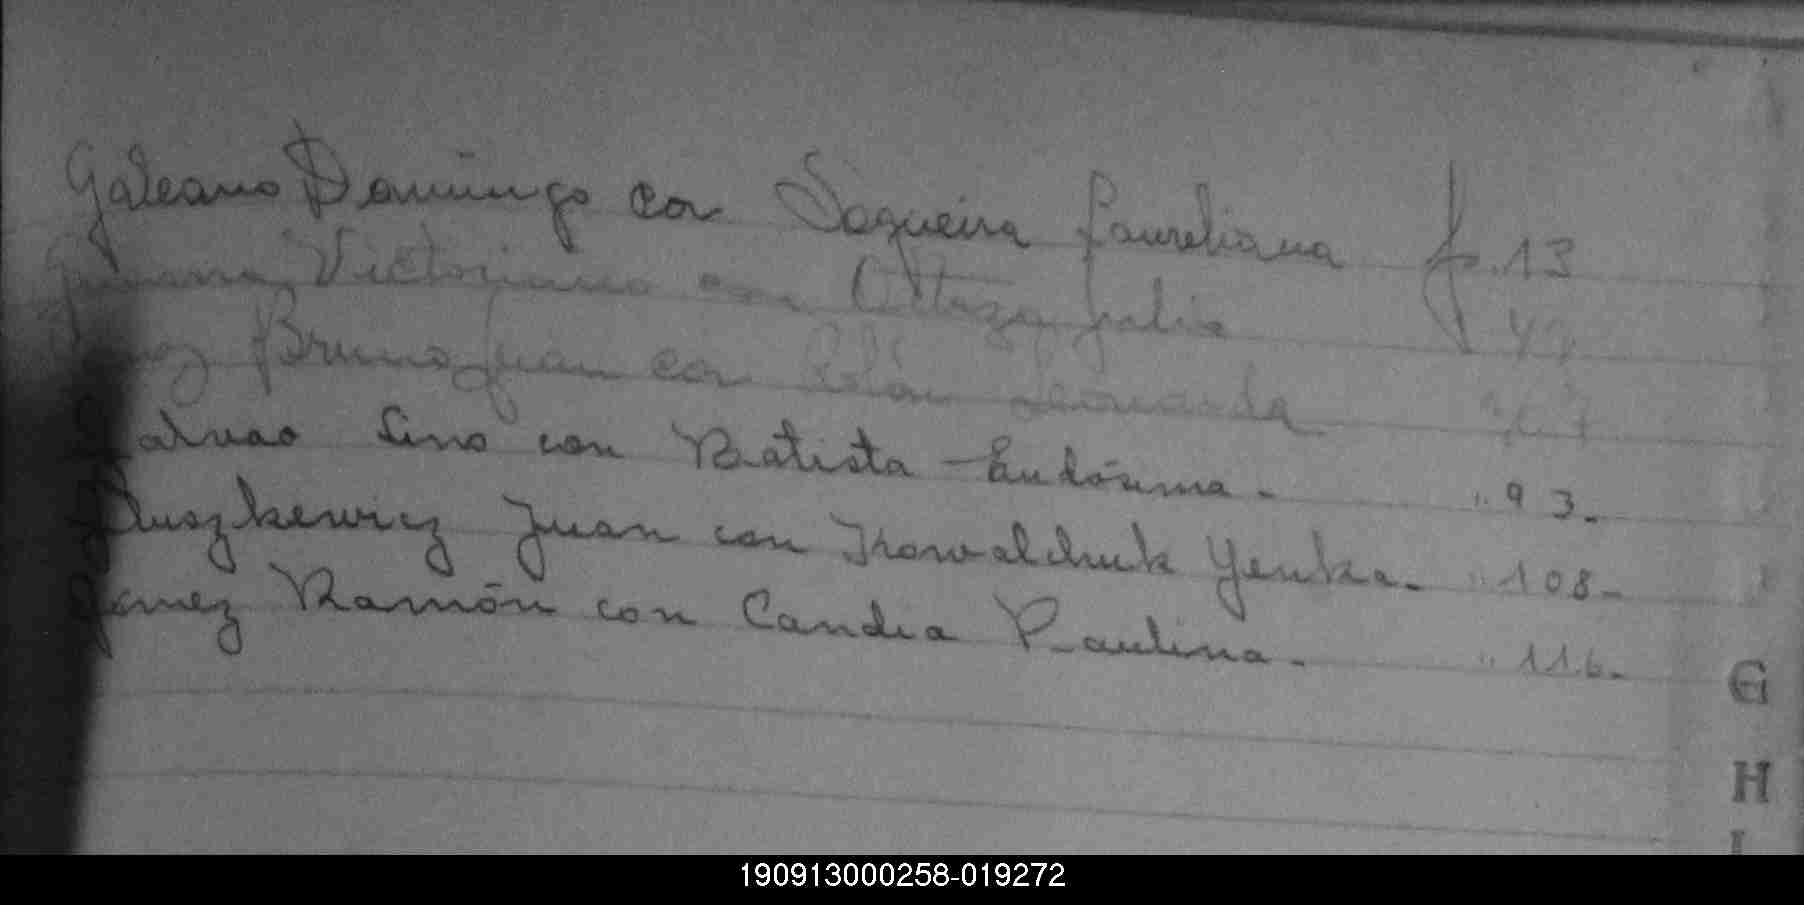 Galeano Domingo con Sequeira Laureliana f. 13
Victoriano con Julia
Bruno Juan con
Galvao Lino con Batista Eudósima - " 93.
Juan con Kowalchuk Yenka. " 108-
Gomez Ramón con Candia Paulina. " 116.
G
H
I
190913000258-019272